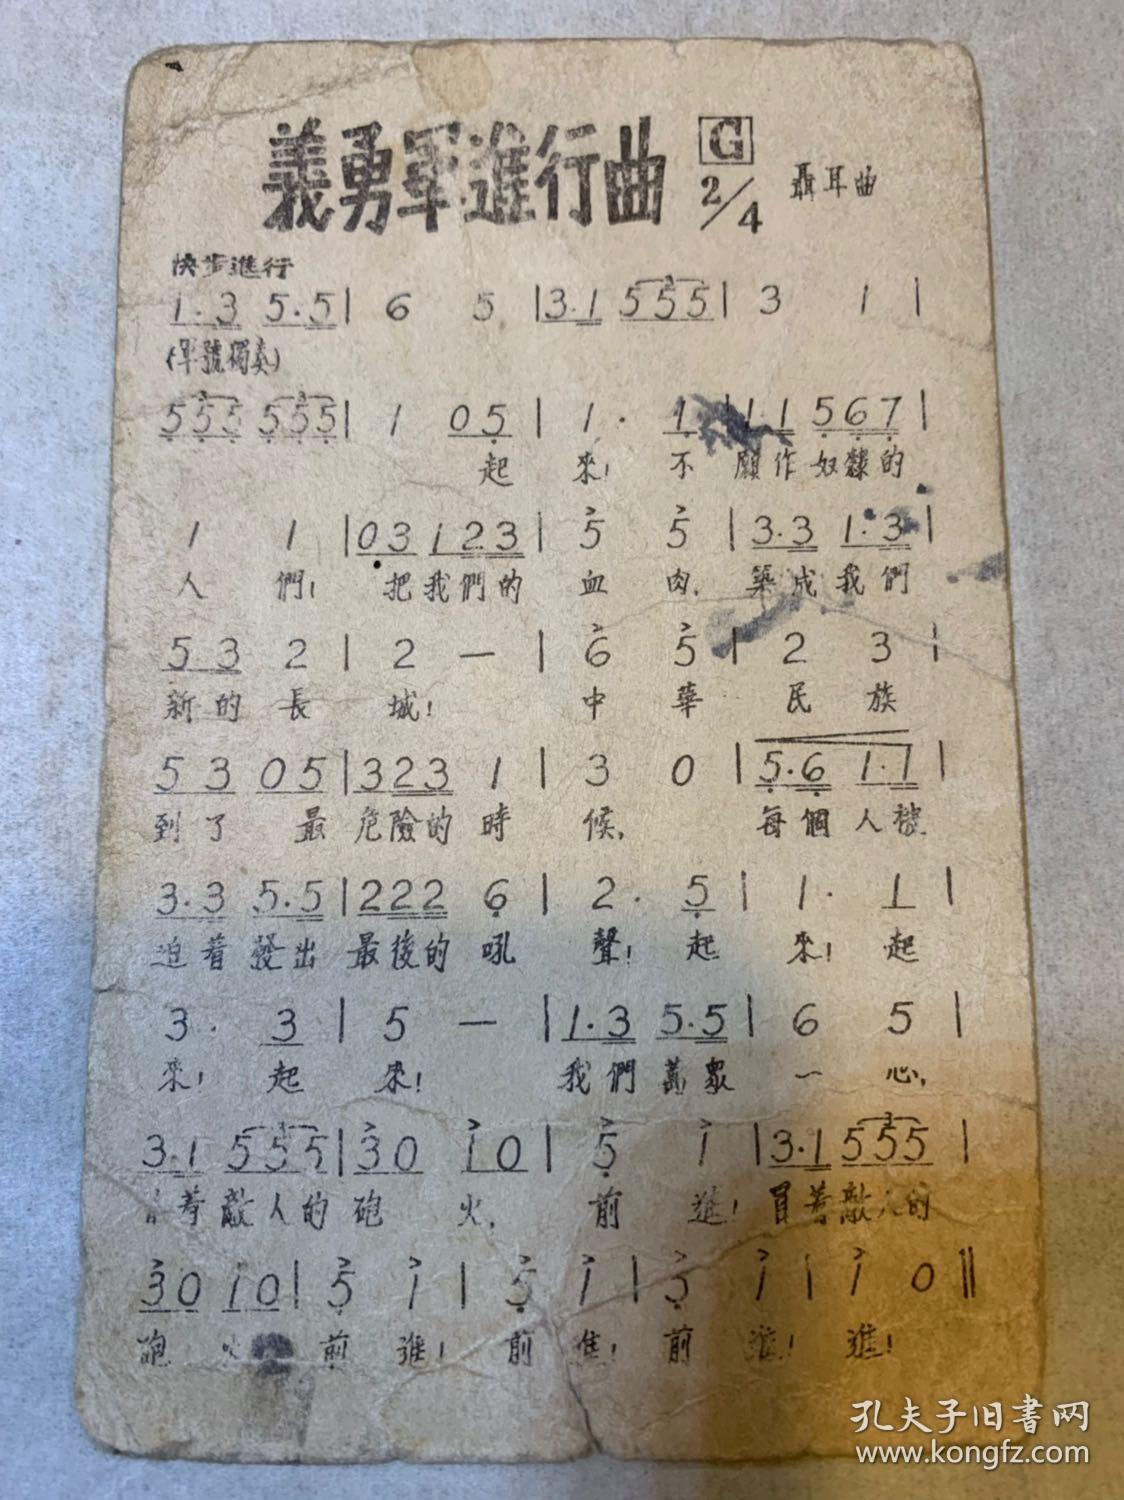 義勇軍進行曲 G 2/4 聶耳曲
快步進行
1.3 5.5 | 6 5 | 3.1 5 5 5 | 3 1 |
(軍號獨奏)
5 5 5 5 5 5 | 1 0 5 | 1 . 1 | 1.1 5 6 7 |
起 來! 不 願作奴隸的
1 1 | 0 3 1 2 3 | 5 5 | 3.3 1.3 |
人 們! 把我們的 血 肉, 築成我們
5 3 2 | 2 — | 6 5 | 2 3 |
新的長 城! 中 華 民 族
5 3 0 5 | 3 2 3 1 | 3 0 | 5.6 1.1 |
到了 最 危險的時 候, 每個人被
3.3 5.5 | 2 2 2 6 | 2 . 5 | 1 . 1 |
迫着發出 最後的吼 聲! 起 來! 起
3 . 3 | 5 — | 1.3 5.5 | 6 5 |
來! 起 來! 我們萬眾 一 心,
3.1 5 5 5 | 3 0 1 0 | 5 1 | 3.1 5 5 5 |
着敵人的 砲 火, 前 進! 冒着敵人的
3 0 1 0 | 5 1 | 5 1 | 5 1 | 1 0 ||
砲 火 前 進! 前 進! 前 進! 進!
孔夫子旧書网
www.kongfz.com